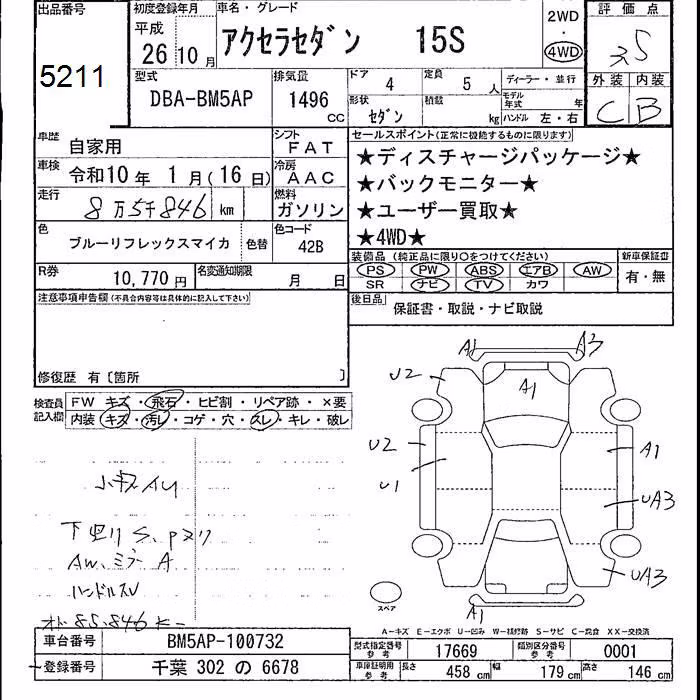 出品番号
5211
初度登録年月
平成
26 10 月
車名・グレード
アクセラセダン 15S
2WD
・
4WD
評価点
3.5
外装 内装
C B
型式
DBA-BM5AP
排気量
1496
CC
ドア 4
定員 5 人
ディーラー・並行
形状 セダン
積載 kg
モデル年式 年
ハンドル 左・右
車歴
自家用
シフト
FAT
車検
令和10年 1月(16日)
冷房
AAC
走行
8万5千846 km
燃料
ガソリン
色
ブルーリフレックスマイカ
色替
色コード
42B
R券
10,770 円
名変通知期限
月 日
セールスポイント(正常に機能するものに限ります)
★ディスチャージパッケージ★
★バックモニター★
★ユーザー買取★
★4WD★
装備品 (純正品に限り○をつけてください)
PS PW ABS エアB AW
SR ナビ TV カワ
新車保証書
有・無
後日品
保証書・取説・ナビ取説
注意事項申告欄(不具合内容等は具体的に記入して下さい)
修復歴 有〔箇所 〕
検査員記入欄
FW キズ・飛石・ヒビ割・リペア跡・×要
内装 キズ・汚レ・コゲ・穴・スレ・キレ・破レ
小キズAU
下廻り S、Pヌリ
AW、ミラー A
ハンドルスレ
オド 85,846 K
A1 A3
U2 A1
U2 A1
U1 UA3
UA3
A1
スペア
A-キズ E-エクボ U-凹み W-補修跡 S-サビ C-腐食 XX-交換済
車台番号
BM5AP-100732
登録番号
千葉 302 の 6678
型式指定番号
参考
17669
類別区分番号
参考
0001
車庫証明用
参考
長さ 458 cm 幅 179 cm 高さ 146 cm